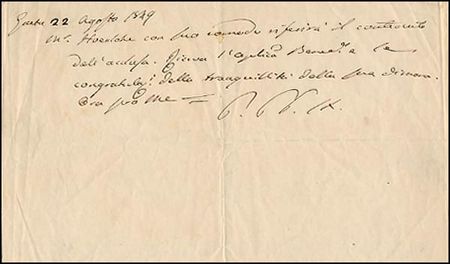 Gaeta 22 Agosto 1849
Mr. Hohenlohe con suo comodo riferirà il contenuto
dell'acclusa. Riceva l'Aplica Bened.e e le
congratulaz. della tranquillità della sua dimora.
Ora pro me =
P. P. IX.